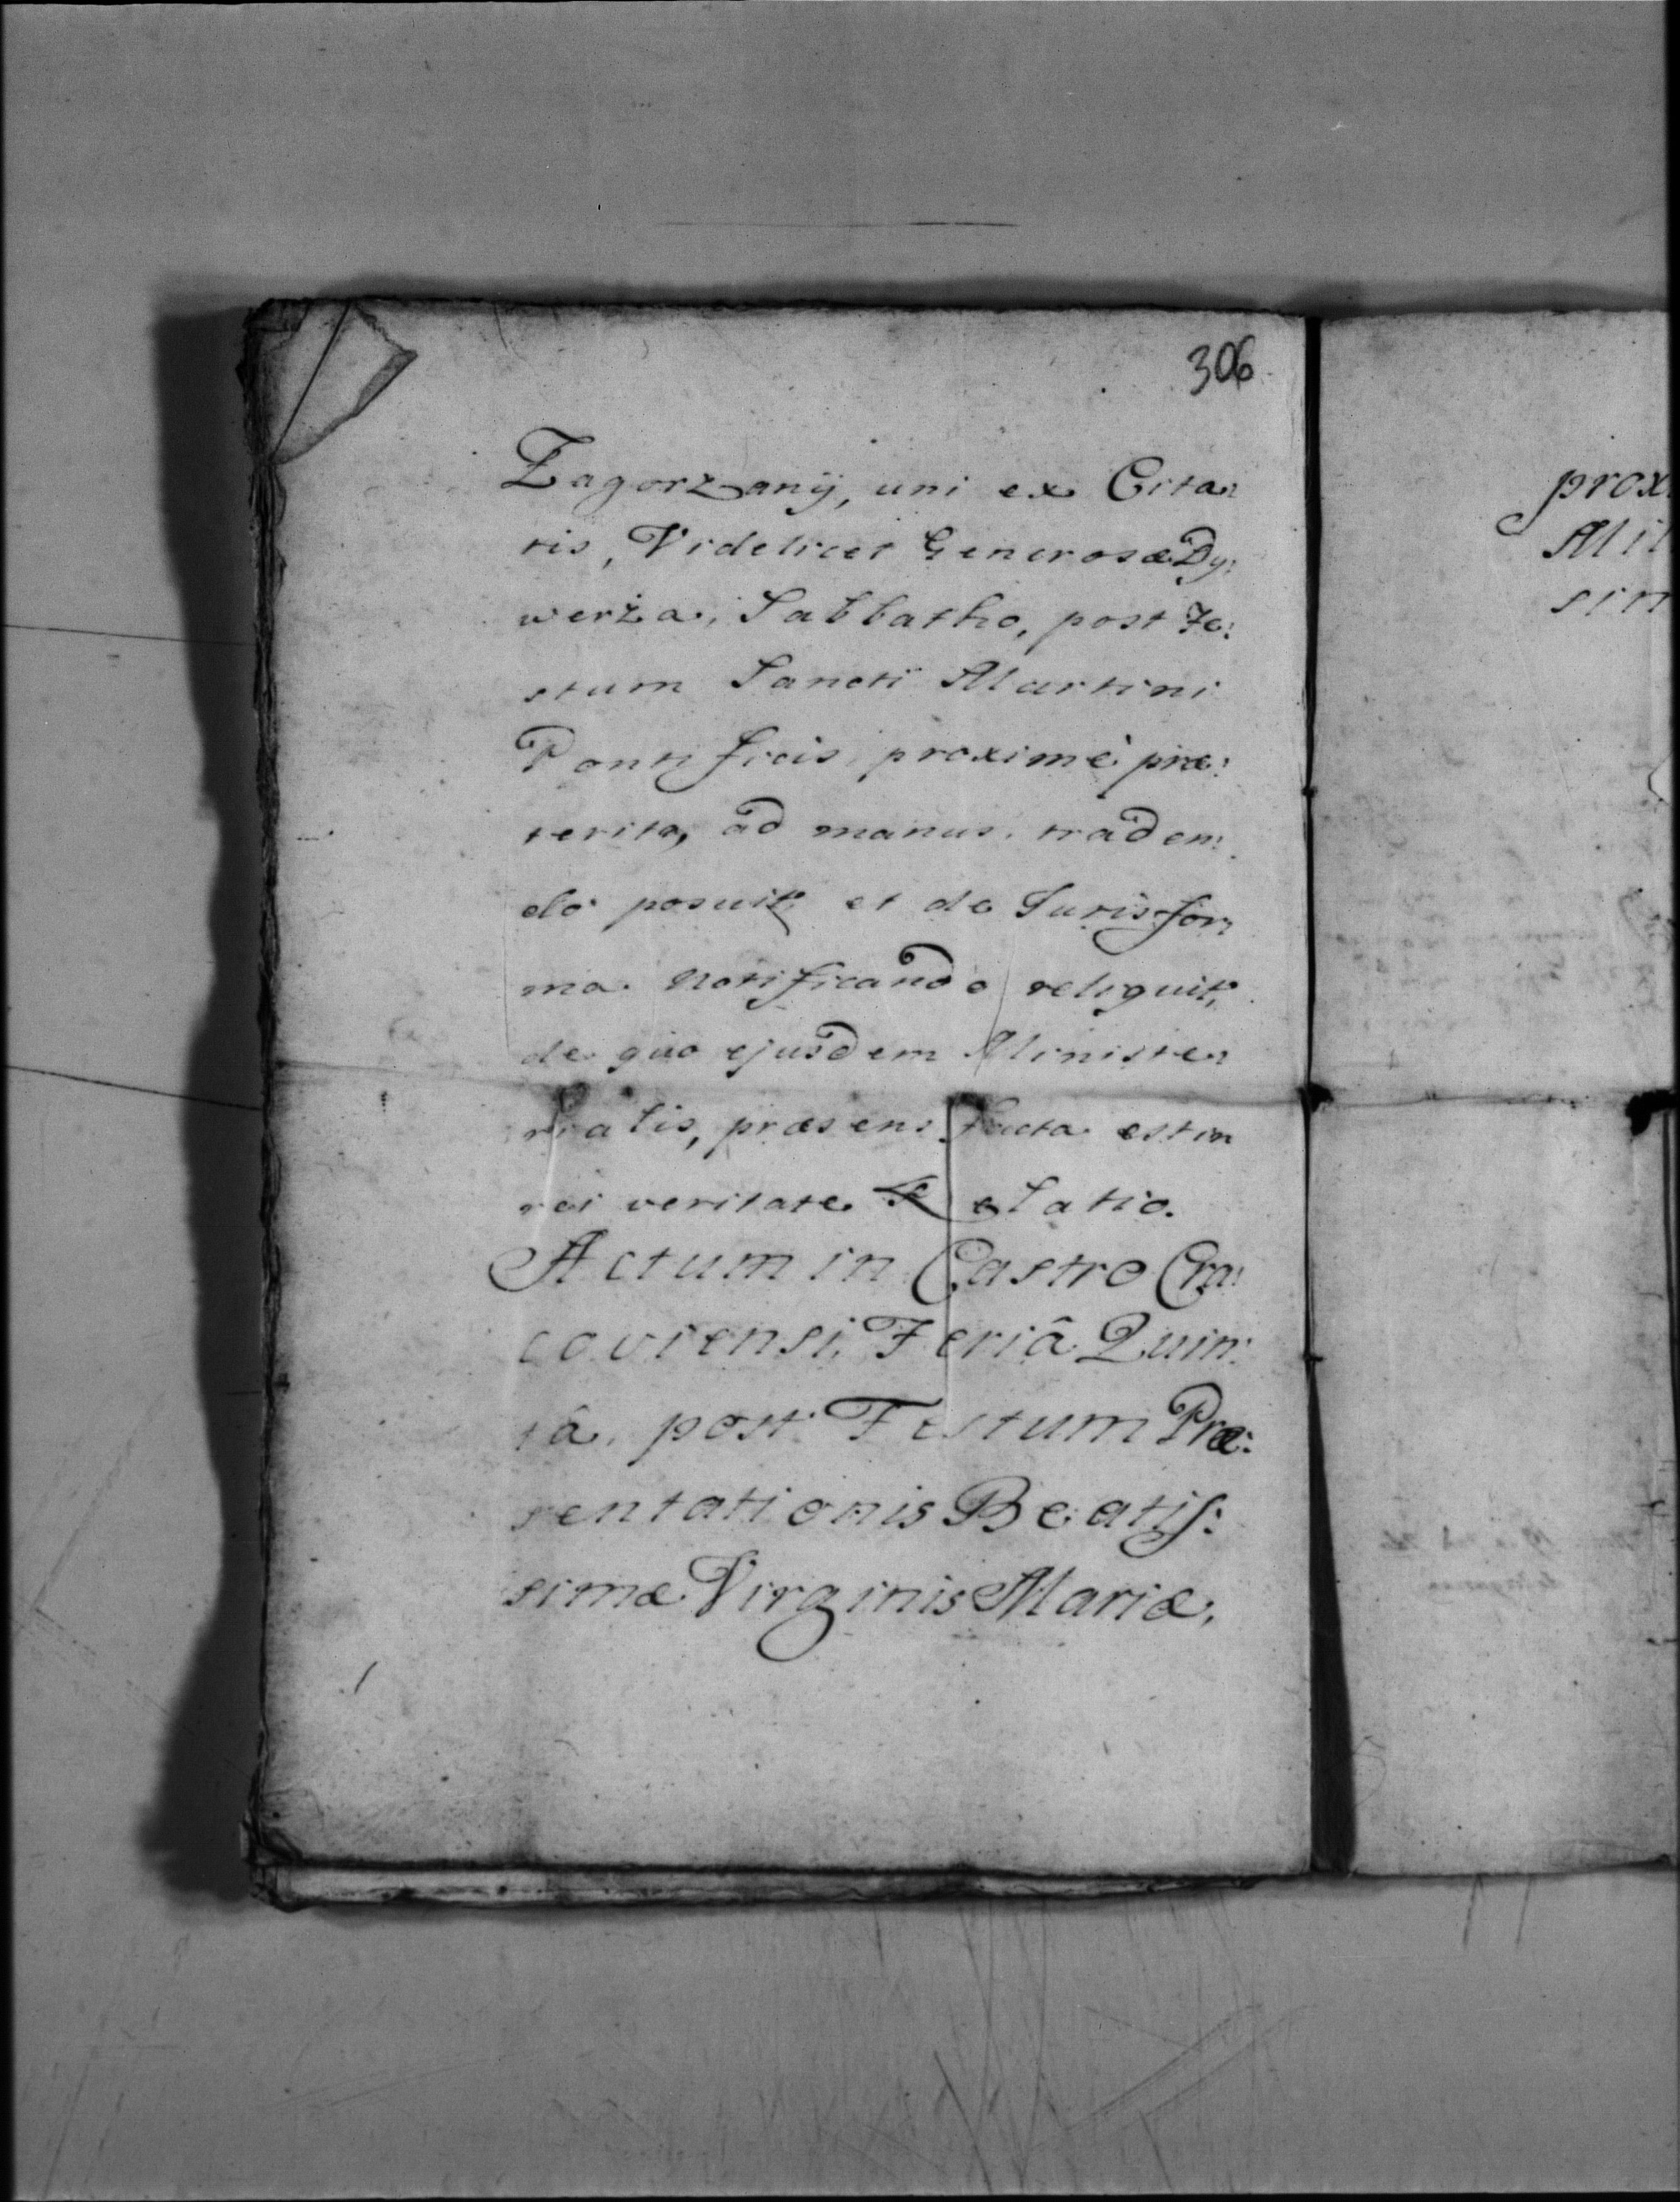 306
Zagorzany, uni ex Cita:
tis, Videlicet Generosæ Dy:
werża, Sabbatho, post Fe:
stum Sancti Martini
Pontificis, proximè præ:
terito, ad manus traden:
do posuit, et de Juris for:
ma notificando reliquit,
de quo ejusdem Ministe:
rialis, præsens facta est in
rei veritate Relatio.
Actum in Castro Cra:
coviensi, Feriâ Quin:
tâ, post Festum Præ:
sentationis Beatis:
simæ Virginis Mariæ,
prox
Mil
sim